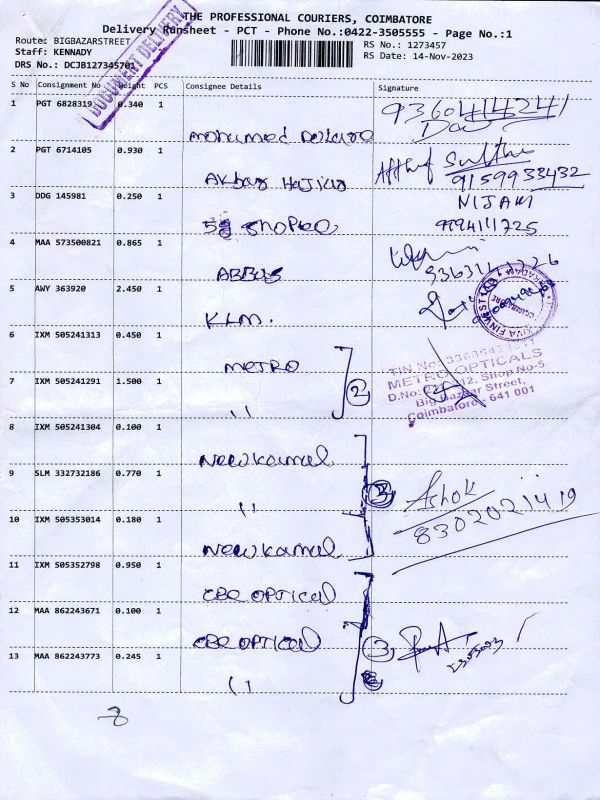 THE PROFESSIONAL COURIERS, COIMBATORE
Delivery Runsheet - PCT - Phone No.:0422-3505555 - Page No.:1
Route: BIGBAZARSTREET
RS No.: 1273457
Staff: KENNADY
RS Date: 14-Nov-2023
DRS No.: DCJB127345701
DOCUMENT DELIVERY
S No Consignment No Weight PCS Consignee Details Signature
1 PGT 6828319 0.340 1 mohamed 9360414241
2 PGT 6714105 0.930 1 Akbar 9159933432
3 DDG 145981 0.250 1 NIJAM
4 MAA 573500821 0.865 1 ABBUS
5 AWY 363920 2.450 1 KLM.
6 IXM 505241313 0.450 1 METRO
7 IXM 505241291 1.500 1 " 2
METRO OPTICALS
Big Bazaar Street,
Coimbatore - 641 001
8 IXM 505241304 0.100 1 New kamal
9 SLM 332732186 0.770 1 " 3 Ashok
8302021419
10 IXM 505353014 0.180 1 New kamal
11 IXM 505352798 0.950 1 CBE OPTICAL
12 MAA 862243671 0.100 1 CBE OPTICAL 3
13 MAA 862243773 0.245 1 "